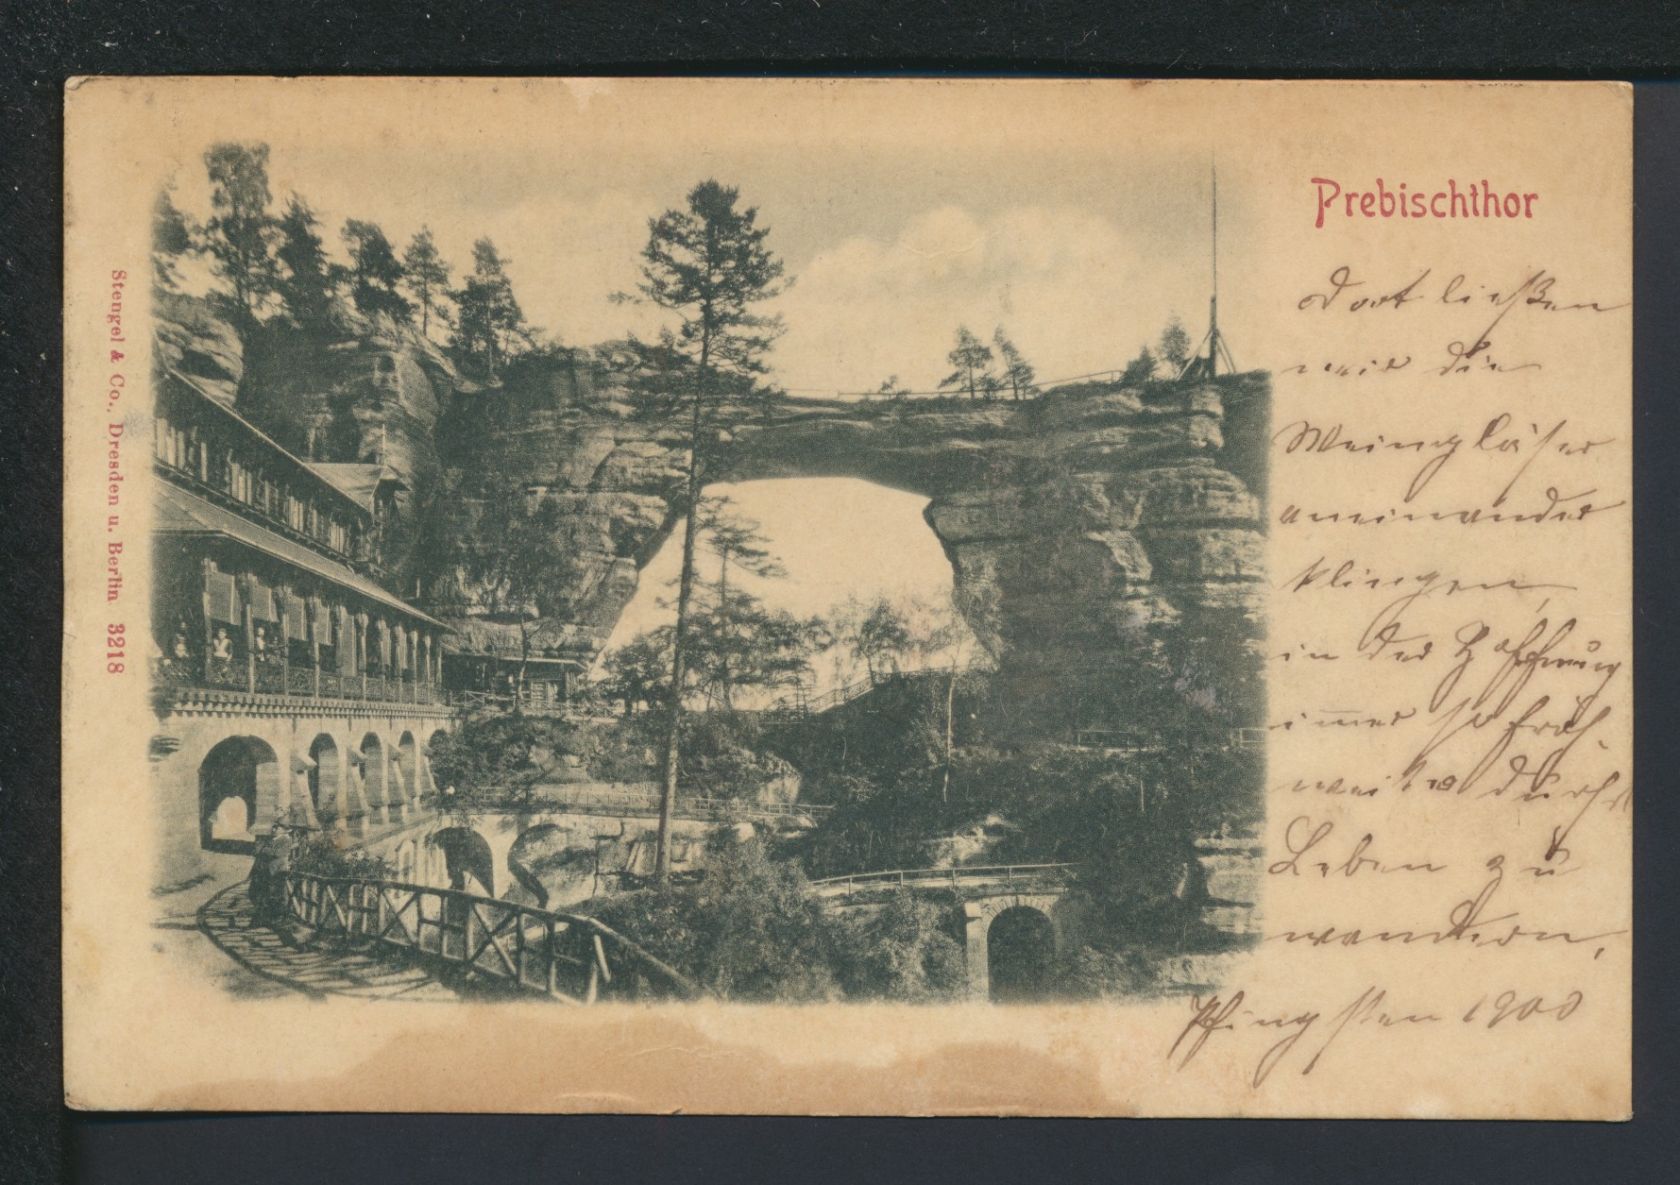 Prebischthor
Dort ließen
wir die
Weingläser
aneinander
klingen,
in der Hoffnung
immer so fröh-
weiter durchs
Leben zu
wandern,
Pfingsten 1900
Stengel & Co., Dresden u. Berlin 3218